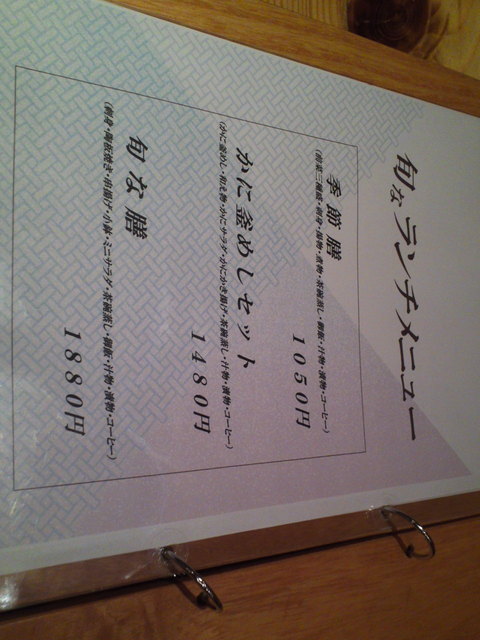 旬なランチメニュー
季節膳
(前菜三種盛・刺身・揚物・煮物・茶碗蒸し・御飯・汁物・漬物・コーヒー)
1050円
かに釜めしセット
(かに釜めし・和え物・かにサラダ・かにかき揚げ・茶碗蒸し・汁物・漬物・コーヒー)
1480円
旬な膳
(刺身・陶板焼き・串揚げ・小鉢・ミニサラダ・茶碗蒸し・御飯・汁物・漬物・コーヒー)
1880円